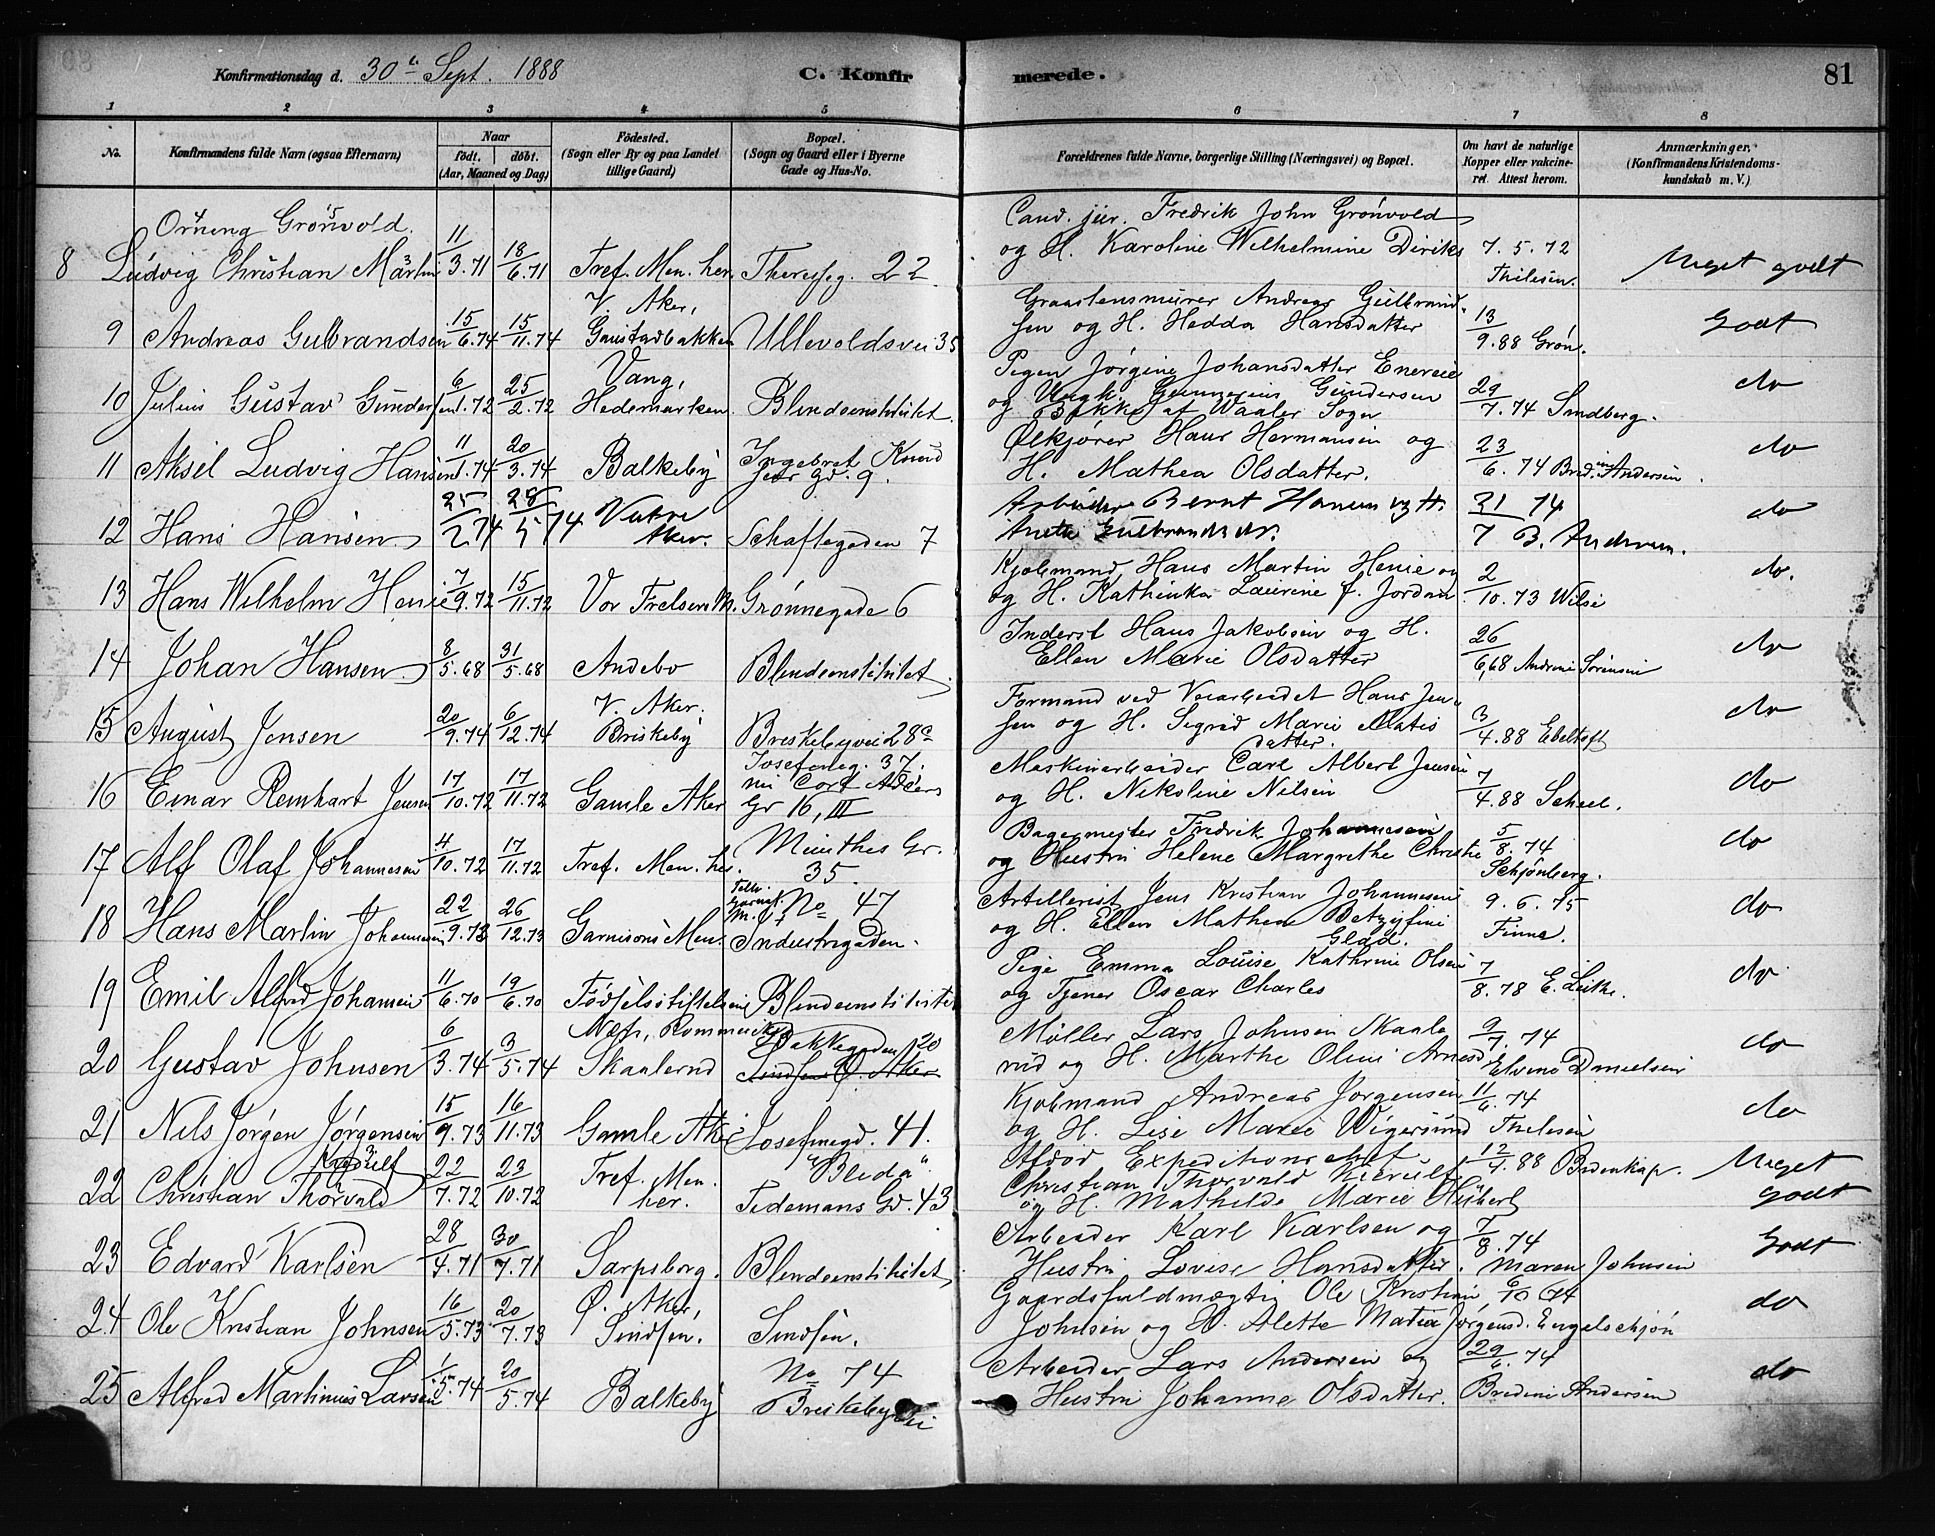 Konfirmationsdag d. 30te Sept. 1888 C. Konfirmerede. 81
1 2 3 4 5 6 7 8
No. Konfirmandens fulde Navn (ogsaa Efternavn) Naar født. døbt. (Aar, Maaned og Dag) Fødested. (Sogn eller By og paa Landet tillige Gaard) Bopæl. (Sogn og Gaard eller i Byerne Gade og Hus-No. Forældrenes fulde Navne, borgerlige Stilling (Næringsvei) og Bopæl. Om havt de naturlige Kopper eller vakcineret. Attest herom. Anmærkninger. (Konfirmandens Kristendomskundskab m. V.)
Orning Grønvold. Cand. jur. Fredrik John Grønvold
8 Ludvig Christian Martin 11/3.71 18/6.71 Tref. Men. her Theresesg. 22 og H. Karoline Wilhelmine Diriks 7.5.72 Thilesen. Meget godt
9 Andreas Gulbrandsen 15/6.74 15/11.74 V. Aker, Gaustadbakken Ullevoldsvei 35 Graastensmurer Andreas Gulbrandsen og H. Hedda Hansdatter 13/9.88 Grøn. Godt
10 Julius Gustav Gundersen 6/1.72 25/2.72 Vang, Hedemarken Blindeinstitutet Pigen Jørgine Johansdatter Enereie og Ungk. Gunnerius Gundersen Bakke af Waaler Sogn 29/7.74 Sundberg. do
11 Aksel Ludvig Hansen 11/1.74 20/3.74 Balkeby Ingebret Knud Jens gd. 9. Ølkjører Hans Hermansen og H. Mathea Olsdatter. 23/6.74 Bredine Andersen do
12 Hans Hansen 25/2 74 28/5 74 Vestre Aker. Schaftegaden 7 Arbeider Bernt Hansen og H. Anette Gulbrandsdr. 31/7 74 B. Andersen. do
13 Hans Wilhelm Henie 7/9.72 15/11.72 Vor Frelsers M. Grønnegade 6 Kjøbmand Hans Martin Henie og og H. Kathinka Laurine f. Jordan 2/10.73 Wilse do.
14 Johan Hansen 8/5.68 31/5.68 Andebo Blindeinstitutet Inderst Hans Jakobsen og H. Ellen Marie Olsdatter 26/6.68 Andrine Sørensen do
15 August Jensen 20/9.74 6/12.74 V. Aker, Briskeby Briskebyvei 28a Formand ved Veiarbeidet Hans Jensen og H. Sigrid Marie Matisdatter. 3/4.88 Ebeltoft do
16 Einar Reinhart Jensen 17/10.72 17/11.72 Gamle Aker Josefineg. 37. nu Cort Adelers Gr 16, III Maskinarbeider Carl Albert Jensen og H. Nikoline Nilsen 7/4.88 Scheel. do
17 Alf Olaf Johannesen 4/10.72 17/11.72 Tref. Men. her. Munthes Gr. 35. Bagermester Fredrik Johannesen og Hustru Helene Margrethe Christie 5/8.74 Schjønberg. do
18 Hans Martin Johannesen 22/9.73 26/12.73 Garnisons Men. No 47 Industrigaden. Artillerist Jens Kristian Johannesen og H. Ellen Mathea Betzyfine Glad. 9.6.75 Finne. do
19 Emil Alfred Johansen 11/6.70 19/6.70 Fødselsstiftelsen Blindeinstitutet Pige Emma Louise Kathrine Olsen og Tjener Oscar Charles 7/8.78 E. Leith. do
20 Gustav Johnsen 6/3.74 3/5.74 Næs, Rommerike, Skaalerud Bakkegaden 20 Sinsen Ø. Aker Møller Lars Johnsen Skaalerud og H. Marthe Oline Arnesd 9/7.74 Elvine Danielsen do
21 Nils Jørgen Jørgensen 15/9.73 16/11.73 Gamle Aker Josefinegd. 41. Kjøbmand Andreas Jørgensen og H. Lise Marie Wigersund 11/6.74 Thilesen do
22 Christian Thorvald Kierulf 22/7.72 23/10.72 Tref. Men. her. "Blida" Tidemans Gd. 43 Afdød Expeditionschef Christian Thorvald Kierulf og H. Mathilde Marie Heibert 12/4.88 Bidenkap. Meget godt
23 Edvard Karlsen 28/4.71 30/7.71 Sarpsborg. Blindeinstitutet Arbeider Karl Karlsen og Hustru Lovise Hansdatter. 7/8.74 Maren Johnsen Godt
24 Ole Kristian Johnsen 16/5.73 20/7.73 Ø. Aker, Sinsen. Sinsen. Gaardsfuldmægtig Ole Kristian Johnsen og H. Alette Matea Jørgensd. 6/10 74 Engelschjøn do
25 Alfred Martinius Larsen 1/5.74 20/5.74 Balkeby No 74 Briskebyvei Arbeider Lars Andersen og Hustru Johanne Olsdatter. 29/6.74 Bredine Andersen do